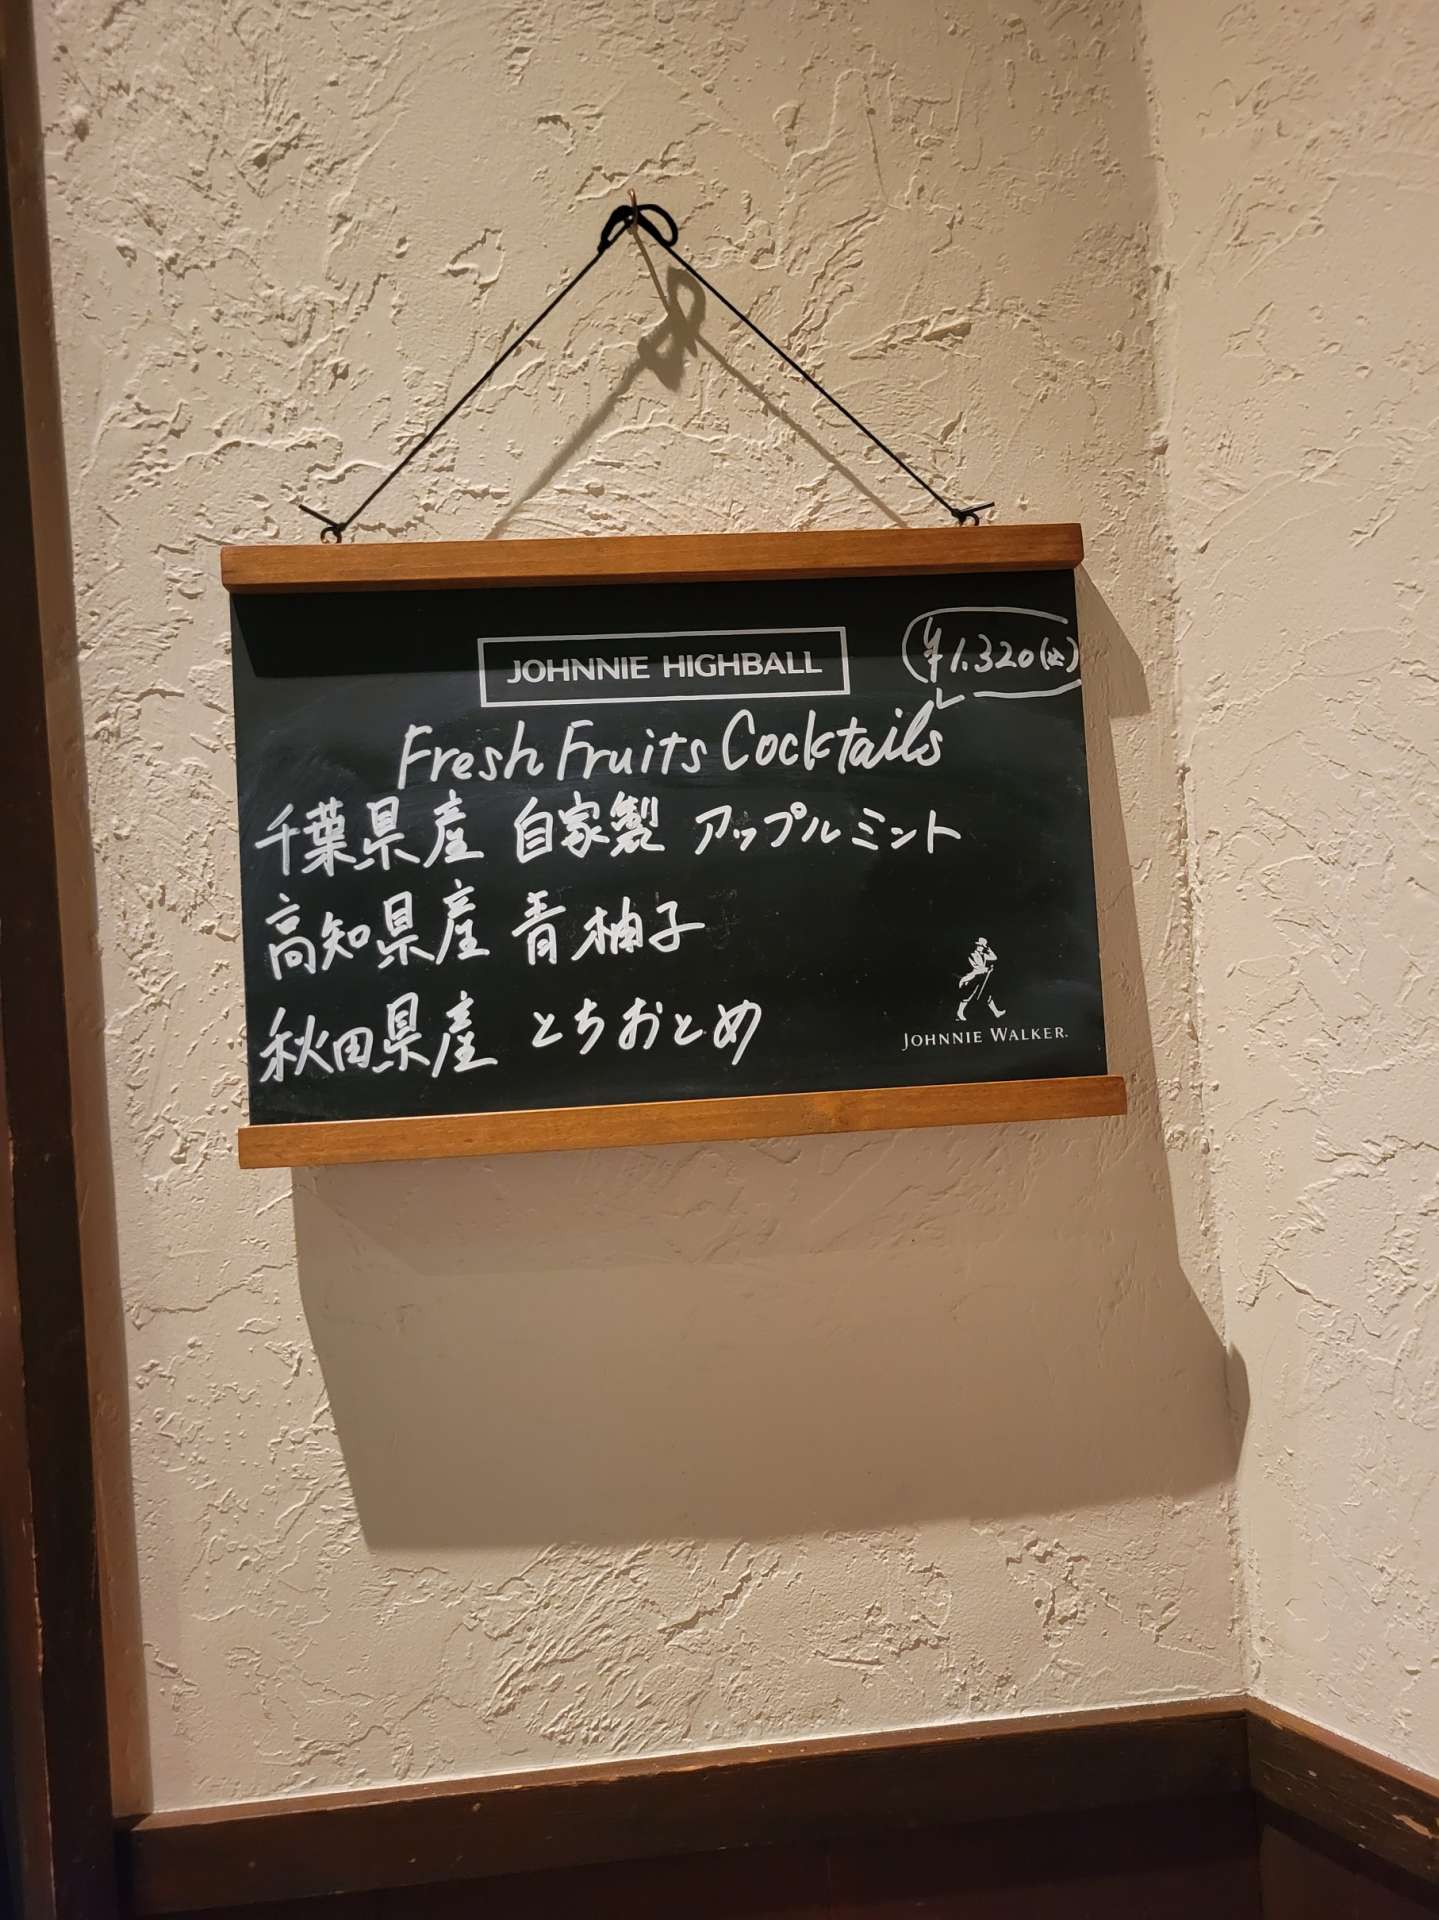 JOHNNIE HIGHBALL
¥1.320(込)
Fresh Fruits Cocktails
千葉県産 自家製 アップルミント
高知県産 青柚子
秋田県産 とちおとめ
JOHNNIE WALKER.